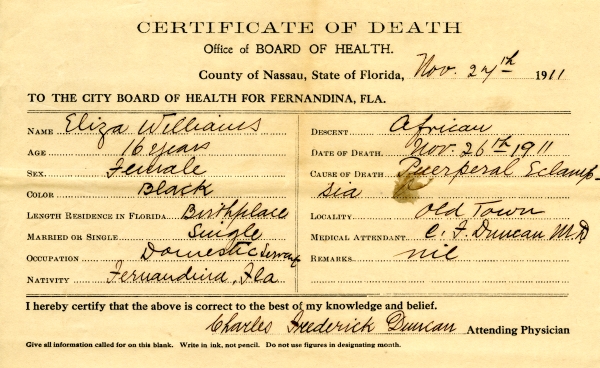 CERTIFICATE OF DEATH
Office of BOARD OF HEALTH.
County of Nassau, State of Florida, Nov. 27th 1911
TO THE CITY BOARD OF HEALTH FOR FERNANDINA, FLA.
NAME Eliza Williams
AGE 16 years
SEX. Female
COLOR Black
LENGTH RESIDENCE IN FLORIDA. Birthplace
MARRIED OR SINGLE Single
OCCUPATION Domestic Servant
NATIVITY Fernandina, Fla
DESCENT African
DATE OF DEATH. Nov. 26th 1911
CAUSE OF DEATH Puerperal Eclamp-
sia
LOCALITY Old Town
MEDICAL ATTENDANT. C. F. Duncan M.D
REMARKS nil
I hereby certify that the above is correct to the best of my knowledge and belief.
Charles Frederick Duncan Attending Physician
Give all information called for on this blank. Write in ink, not pencil. Do not use figures in designating month.